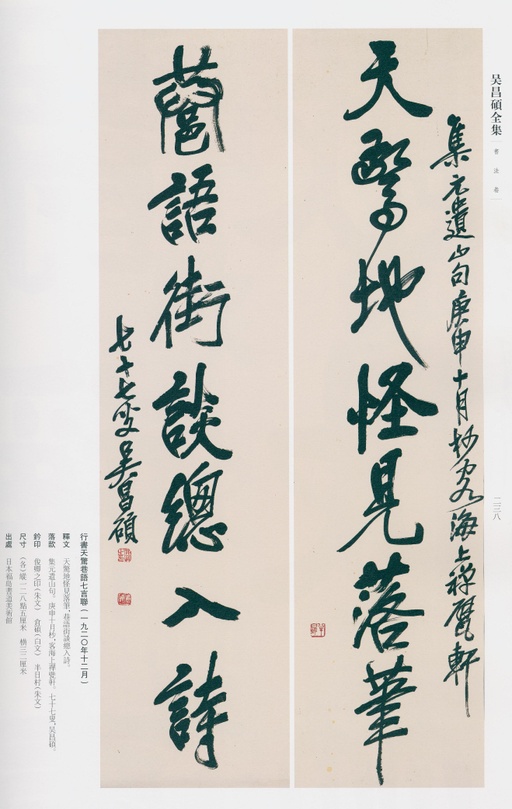 吴昌碩全集 書法卷
二三八
集元遺山句庚申十月杪客海上禪甓軒
天驚地怪見落筆
巷語街談總入詩
七十七叟吳昌碩
行書天驚巷語七言聯(一九二〇年十二月)
釋文 天驚地怪見落筆,巷語街談總入詩。
落款 集元遺山句。庚申十月杪,客海上禪甓軒。七十七叟,吳昌碩。
鈐印 俊卿之印(朱文) 倉碩(白文) 半日村(朱文)
尺寸 (各)縱一二八點五厘米 橫三二厘米
出處 日本福島書道美術館